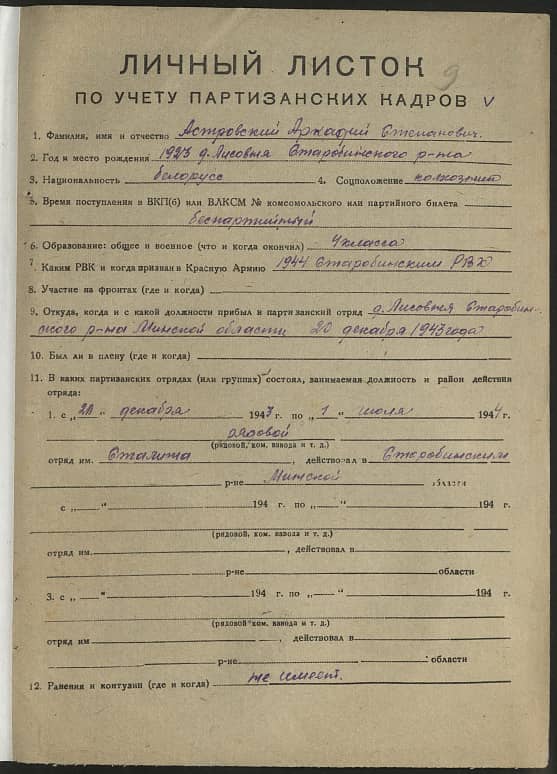 9
ЛИЧНЫЙ ЛИСТОК
ПО УЧЕТУ ПАРТИЗАНСКИХ КАДРОВ V
1. Фамилия, имя и отчество Астровский Аркадий Степанович.
2. Год и место рождения 1923 д. Лисовня Старобинского р-на
3. Национальность белорусс 4. Соцположение колхозник
5. Время поступления в ВКП(б) или ВЛКСМ № комсомольского или партийного билета
беспартийный
6. Образование: общее и военное (что и когда окончил) 4 класса
7. Каким РВК и когда призван в Красную Армию 1944 Старобинским РВК
8. Участие на фронтах (где и когда)
9. Откуда, когда и с какой должности прибыл и партизанский отряд д. Лисовня Старобин-
ского р-на Минской области 20 декабря 1943 года
10. Был ли в плену (где и когда)
11. В каких партизанских отрядах (или группах) состоял, занимаемая должность и район действия
отряда:
1. с „20" декабря 1943 г. по „1" июля 1944 г.
рядовой
(рядовой, ком. взвода и т. д.)
отряд им. Сталина, действовал в Старобинским
р-не Минской области
с „ " 194 г. по „ " 194 г.
(рядовой, ком. взвода и т. д.)
отряд им. , действовал в
р-не области
3. с „ " 194 г. по „ " 194 г.
(рядовой ком. взвода и т. д.)
отряд им , действовал в
р-не области
12. Ранения и контузии (где и когда) не имеет.